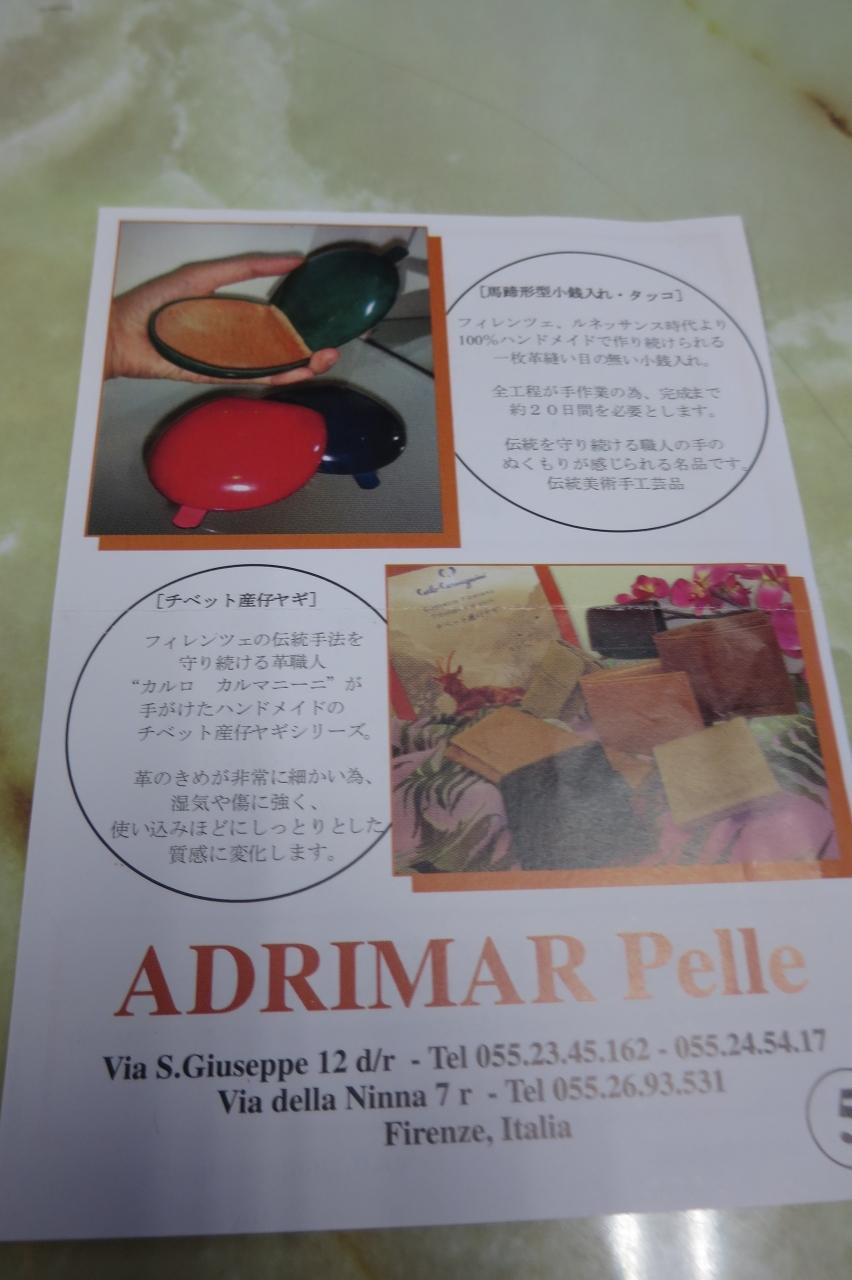 ［馬蹄形型小銭入れ・タッコ］
フィレンツェ、ルネッサンス時代より
100％ハンドメイドで作り続けられる
一枚革縫い目の無い小銭入れ。
全工程が手作業の為、完成まで
約２０日間を必要とします。
伝統を守り続ける職人の手の
ぬくもりが感じられる名品です。
伝統美術手工芸品
［チベット産仔ヤギ］
フィレンツェの伝統手法を
守り続ける革職人
“カルロ　カルマニーニ”が
手がけたハンドメイドの
チベット産仔ヤギシリーズ。
革のきめが非常に細かい為、
湿気や傷に強く、
使い込みほどにしっとりとした
質感に変化します。
チベット産仔ヤギ
ADRIMAR Pelle
Via S.Giuseppe 12 d/r - Tel 055.23.45.162 - 055.24.54.17
Via della Ninna 7 r - Tel 055.26.93.531
Firenze, Italia
5